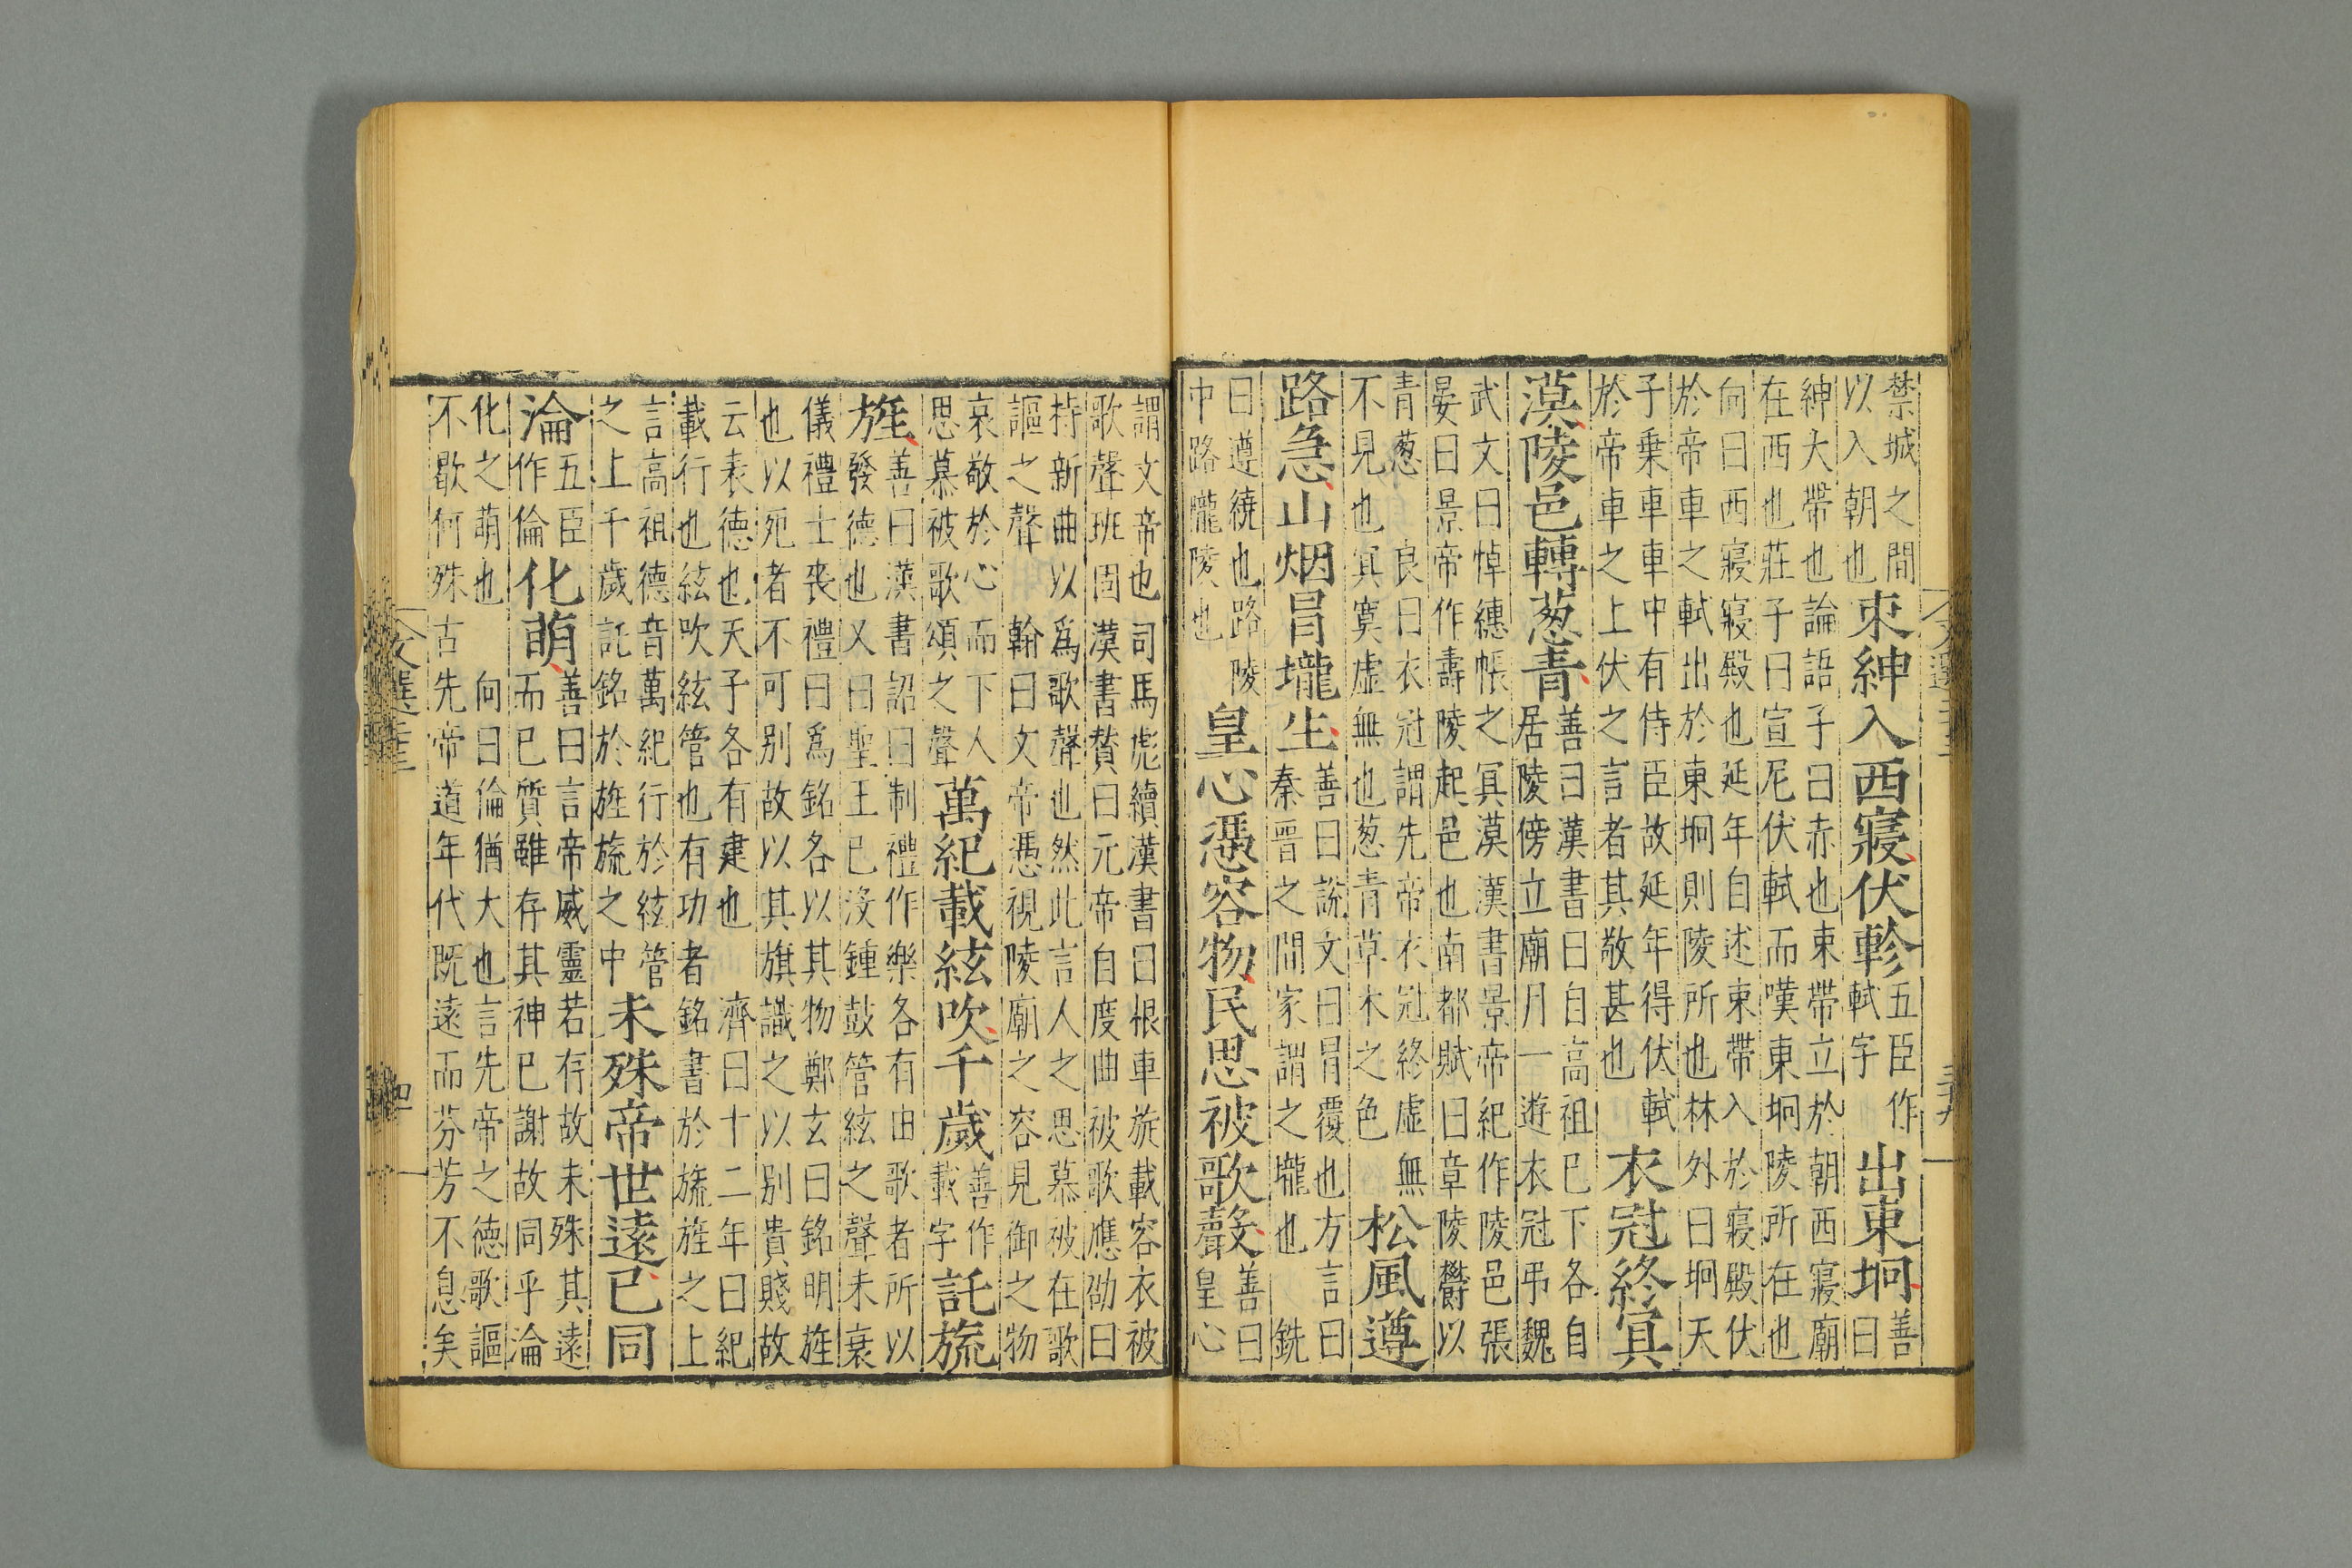 文選
禁城之間
以入朝也
束紳入西寢伏軫
五臣作
軾字
出東坰
善
曰
紳大帶也論語子曰赤也束帶立於朝西寢廟
在西也莊子曰宣尼伏軾而嘆東坰陵所在也
向曰西寢寢殿也延年自述束帶入於寢殿伏
於帝車之軾出於東坰則陵所也林外曰坰天
子乗車車中有侍臣故延年得伏軾
於帝車之上伏之言者其敬甚也
衣冠終㝠
漠陵邑轉葱青
善曰漢書曰自高祖已下各自
居陵傍立廟月一遊衣冠弔魏
武文曰悼繐帳之㝠漠漢書景帝紀作陵邑張
晏曰景帝作壽陵起邑也南都賦曰章陵鬱以
青葱 良曰衣冠謂先帝衣冠終虛無
不見也㝠寞虛無也葱青草木之色
松風遵
路急山烟冒壠生
善曰說文曰冒覆也方言曰
秦晉之間家謂之壠也 銑
曰遵繞也路陵
中路壠陵也
皇心憑容物民思被歌聲
善曰
皇心
謂文帝也司馬彪續漢書曰根車旋載容衣被
歌聲班固漢書贊曰元帝自度曲被歌應劭曰
持新曲以爲歌聲也然此言人之思慕被在歌
謳之聲 翰曰文帝憑視陵廟之容見御之物
哀敬於心而下人
思慕被歌頌之聲
萬紀載絃吹千歲
善作
載字
託旒
旌
善曰漢書詔曰制禮作樂各有由歌者所以
發德也又曰聖王已沒鍾鼓管絃之聲未衰
儀禮士喪禮曰爲銘各以其物鄭玄曰銘明旌
也以死者不可別故以其旗識之以別貴賤故
云表德也天子各有建也 濟曰十二年曰紀
載行也絃吹絃管也有功者銘書於旒旌之上
言高祖德音萬紀行於絃管
之上千歲託銘於旌旒之中
未殊帝世遠已同
淪
五臣
作倫
化萌
善曰言帝威靈若存故未殊其遠
而已質雖存其神已謝故同乎淪
化之萌也 向曰倫猶大也言先帝之德歌謳
不歇何殊古先帝道年代既遠而芬芳不息矣
文選